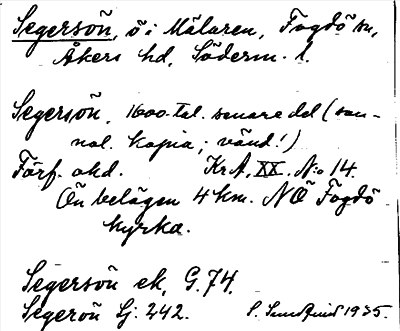 Segersön, ö i Mälaren, Fogdö sn,
Åkers hd, Söderm. l.
Segersön, 1600-tal. senare del (san-
nol. kopia; vänd!)
Förf. okd. KrA, XX. N:o 14.
Ön belägen 4 km. NÖ Fogdö
kyrka.
Segersön ek, G. 74.
Segerön Lj. 242. S. Sundquist 1935.